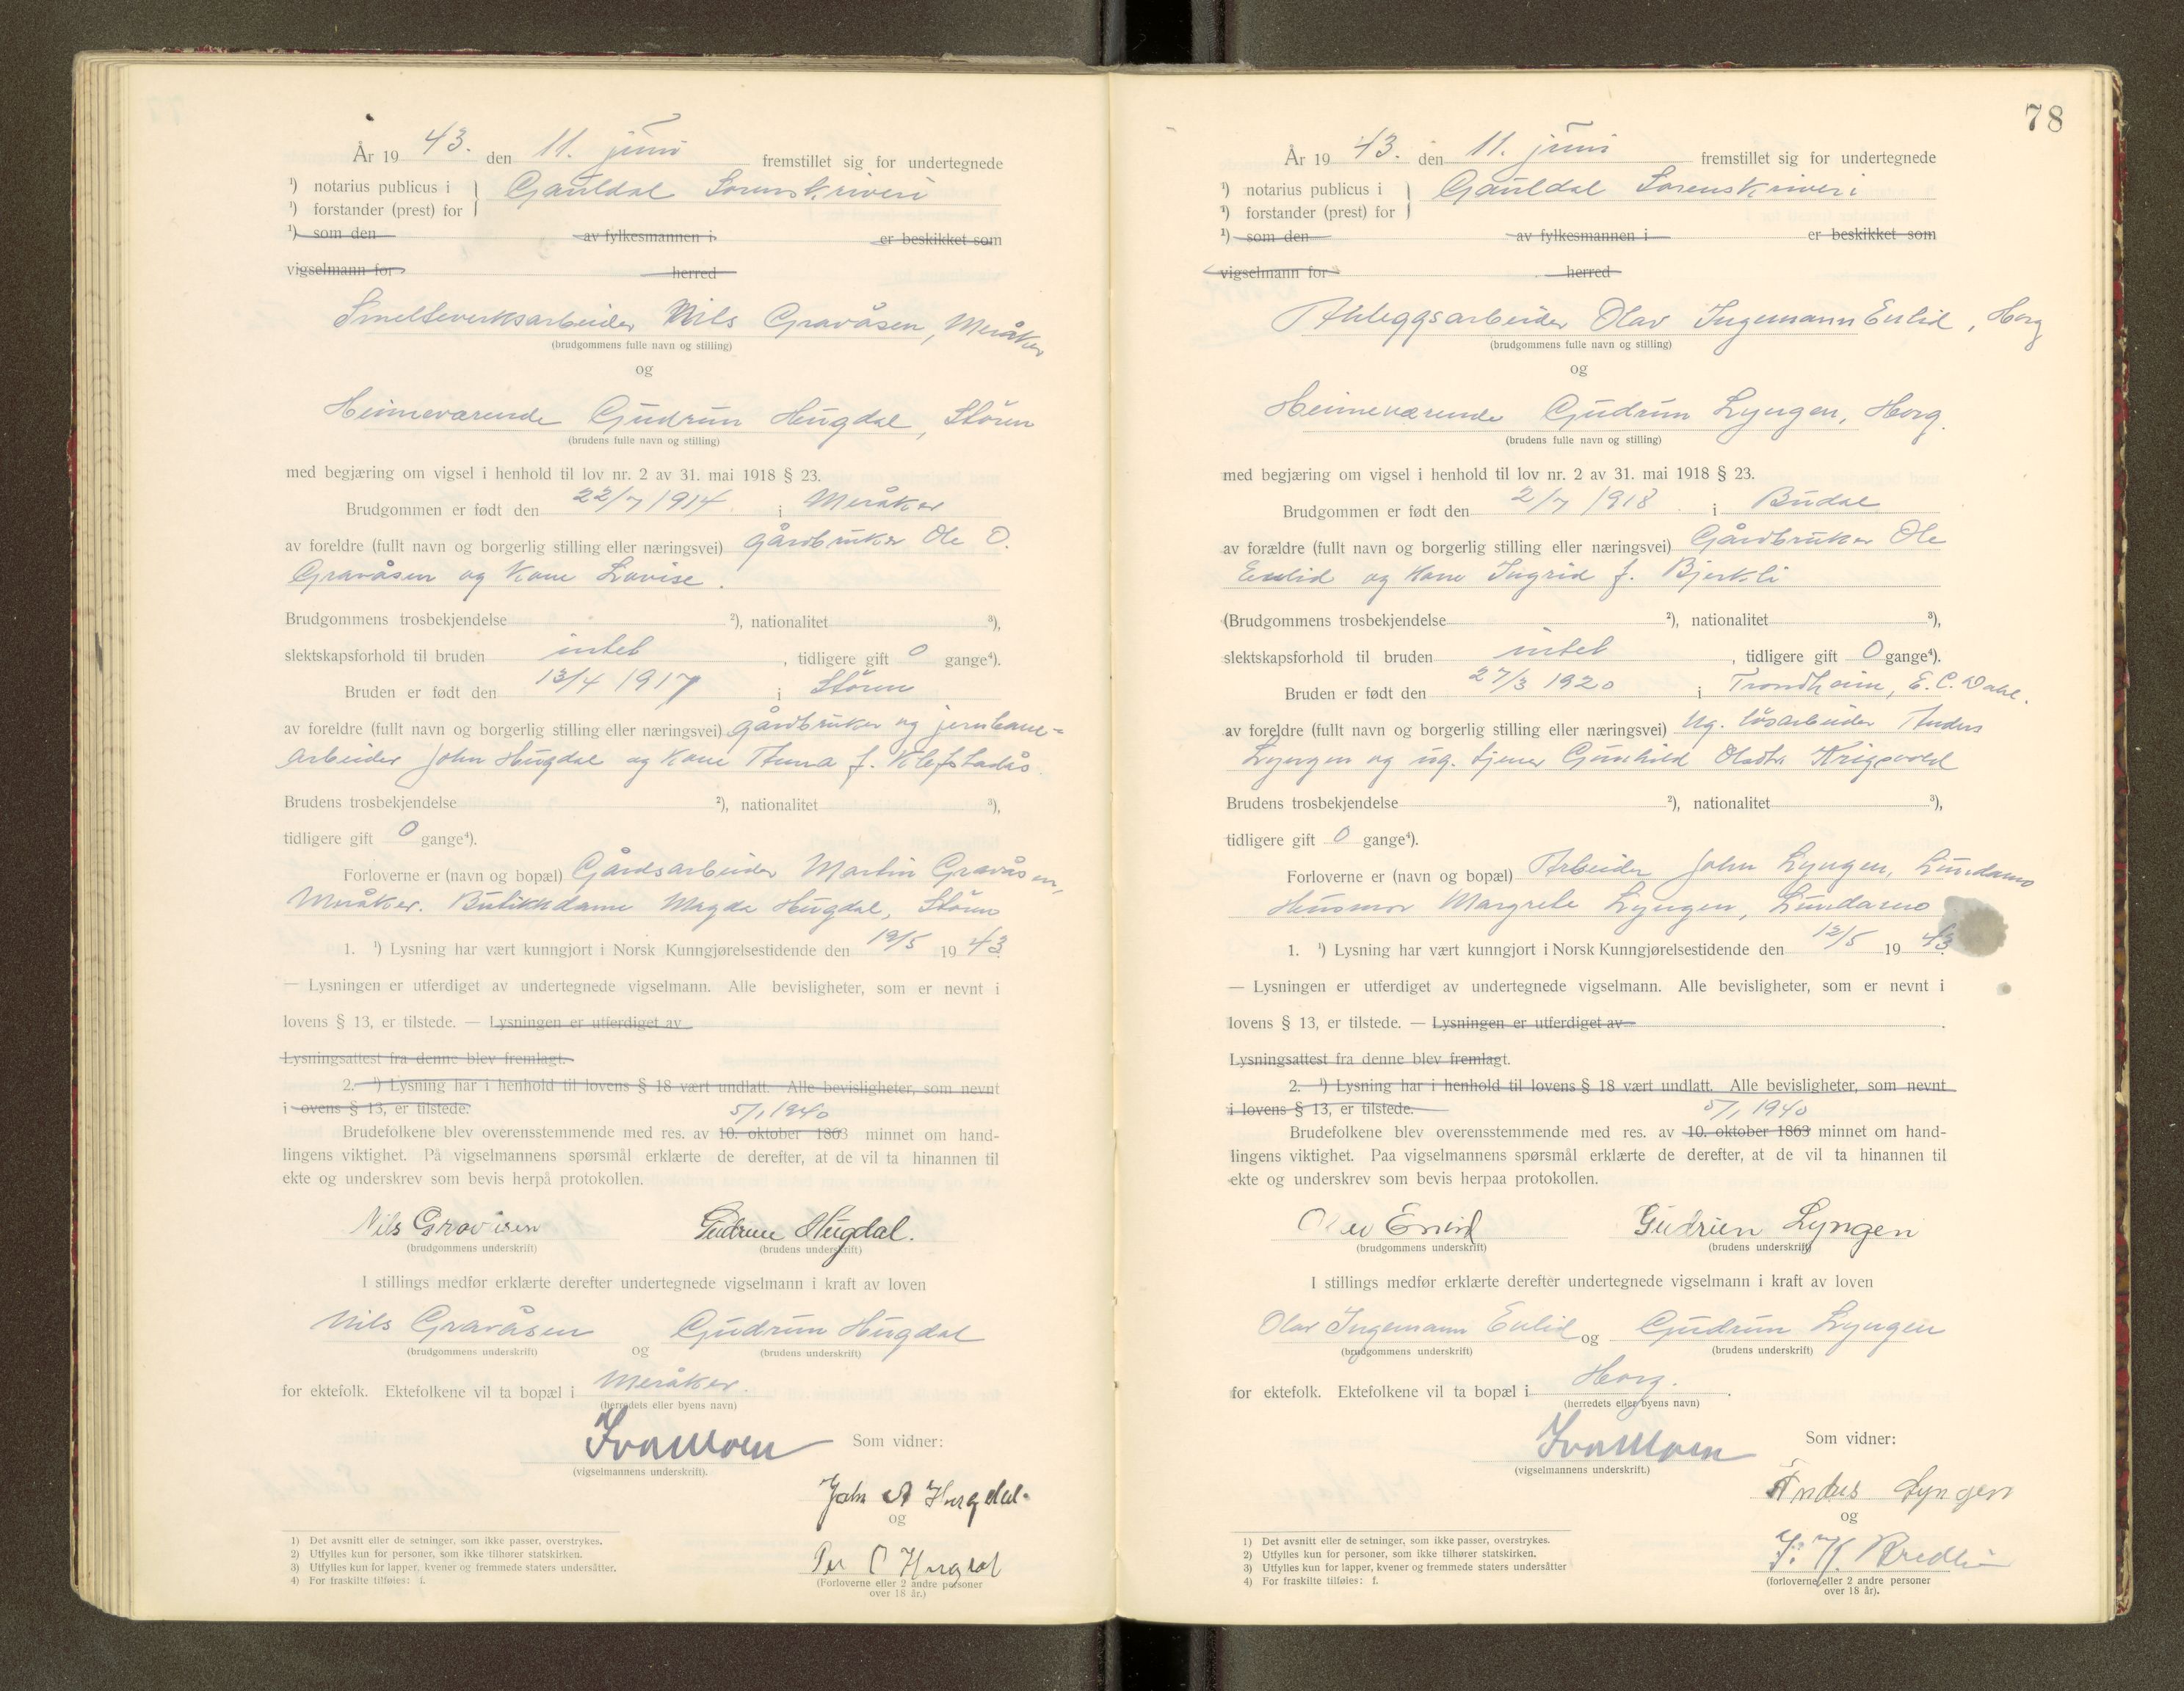 År 19 43. den 11. juni fremstillet sig for undertegnede
¹) notarius publicus i } Gauldal Sorenskriveri
¹) forstander (prest) for
¹) som den av fylkesmannen i er beskikket som
vigselmann for herred
Smelteverksarbeider Nils Gravåsen, Meråker
(brudgommens fulle navn og stilling)
og
Heimeværende Gudrun Hugdal, Støren
(brudens fulle navn og stilling)
med begjæring om vigsel i henhold til lov nr. 2 av 31. mai 1918 § 23.
Brudgommen er født den 22/7 1914 i Meråker
av foreldre (fullt navn og borgerlig stilling eller næringsvei) gårdbruker Ole O.
Gravåsen og kone Lovise.
Brudgommens trosbekjendelse ²), nationalitet ³),
slektskapsforhold til bruden intet , tidligere gift 0 gange⁴).
Bruden er født den 13/4 1917 i Støren
av foreldre (fullt navn og borgerlig stilling eller næringsvei) gårdbruker og jernbane-
arbeider John Hugdal og kone Anna f. Klefstadås
Brudens trosbekjendelse ²), nationalitet ³),
tidligere gift 0 gange⁴).
Forloverne er (navn og bopæl) Gårdsarbeider Martin Gravåsen,
Meråker. Butikkdame Magda Hugdal, Støren
1. ¹) Lysning har vært kunngjort i Norsk Kunngjørelsestidende den 12/5 19 43
— Lysningen er utferdiget av undertegnede vigselmann. Alle bevisligheter, som er nevnt i
lovens § 13, er tilstede. — Lysningen er utferdiget av
Lysningsattest fra denne blev fremlagt.
2. ¹) Lysning har i henhold til lovens § 18 vært undlatt. Alle bevisligheter, som nevnt
i ovens § 13, er tilstede. 5/1 1940
Brudefolkene blev overensstemmende med res. av 10. oktober 1863 minnet om hand-
lingens viktighet. På vigselmannens spørsmål erklærte de derefter, at de vil ta hinannen til
ekte og underskrev som bevis herpå protokollen.
Nils Gravåsen Gudrun Hugdal.
(brudgommens underskrift) (brudens underskrift)
I stillings medfør erklærte derefter undertegnede vigselmann i kraft av loven
Nils Gravåsen og Gudrun Hugdal
(brudgommens underskrift) (brudens underskrift)
for ektefolk. Ektefolkene vil ta bopæl i Meråker.
(herredets eller byens navn)
Som vidner:
(vigselmannens underskrift).
John A Hugdal.
og
Per O Hugdal
(Forloverne eller 2 andre personer
over 18 år.)
1) Det avsnitt eller de setninger, som ikke passer, overstrykes.
2) Utfylles kun for personer, som ikke tilhører statskirken.
3) Utfylles kun for lapper, kvener og fremmede staters undersåtter.
4) For fraskilte tilføies: f.
78
År 19 43. den 11. juni fremstillet sig for undertegnede
¹) notarius publicus i } Gauldal Sorenskriveri
¹) forstander (prest) for
¹) som den av fylkesmannen i er beskikket som
vigselmann for herred
Anleggsarbeider Olav Ingemann Enlid, Horg
(brudgommens fulle navn og stilling)
og
Heimeværende Gudrun Lyngen, Horg.
(brudens fulle navn og stilling)
med begjæring om vigsel i henhold til lov nr. 2 av 31. mai 1918 § 23.
Brudgommen er født den 2/7 1918 i Budal
av forældre (fullt navn og borgerlig stilling eller næringsvei) Gårdbruker Ole
Enlid og kone Ingrid f. Bjerkli
(Brudgommens trosbekjendelse ²), nationalitet ³),
slektskapsforhold til bruden intet , tidligere gift 0 gange⁴).
Bruden er født den 27/3 1920 i Trondheim, E. C. Dahl.
av foreldre (fullt navn og borgerlig stilling eller næringsvei) Ug. løsarbeider Anders
Lyngen og ug. tjener Gunhild Olsdtr Krigsvold
Brudens trosbekjendelse ²), nationalitet ³),
tidligere gift 0 gange⁴).
Forloverne er (navn og bopæl) Arbeider John Lyngen, Lundamo
Husmor Margrete Lyngen, Lundamo
1. ¹) Lysning har vært kunngjort i Norsk Kunngjørelsestidende den 12/5 19 43.
— Lysningen er utferdiget av undertegnede vigselmann. Alle bevisligheter, som er nevnt i
lovens § 13, er tilstede. — Lysningen er utferdiget av .
Lysningsattest fra denne blev fremlagt.
2. ¹) Lysning har i henhold til lovens § 18 vært undlatt. Alle bevisligheter, som nevnt
i lovens § 13, er tilstede. 5/1 1940
Brudefolkene blev overensstemmende med res. av 10. oktober 1863 minnet om hand-
lingens viktighet. Paa vigselmannens spørsmål erklærte de derefter, at de vil ta hinannen til
ekte og underskrev som bevis herpaa protokollen.
Olav Enlid Gudrun Lyngen
(brudgommens underskrift) (brudens underskrift)
I stillings medfør erklærte derefter undertegnede vigselmann i kraft av loven
Olav Ingemann Enlid og Gudrun Lyngen
(brudgommens underskrift) (brudens underskrift)
for ektefolk. Ektefolkene vil ta bopæl i Horg.
(herredets eller byens navn)
Som vidner:
(vigselmannens underskrift.)
Anders Lyngen
og
(forloverne eller 2 andre personer
over 18 år).
1) Det avsnitt eller de setninger, som ikke passer, overstrykes.
2) Utfylles kun for personer, som ikke tilhører statskirken.
3) Utfylles kun for lapper, kvener og fremmede staters undersåtter
4) For fraskilte tilføies: f.